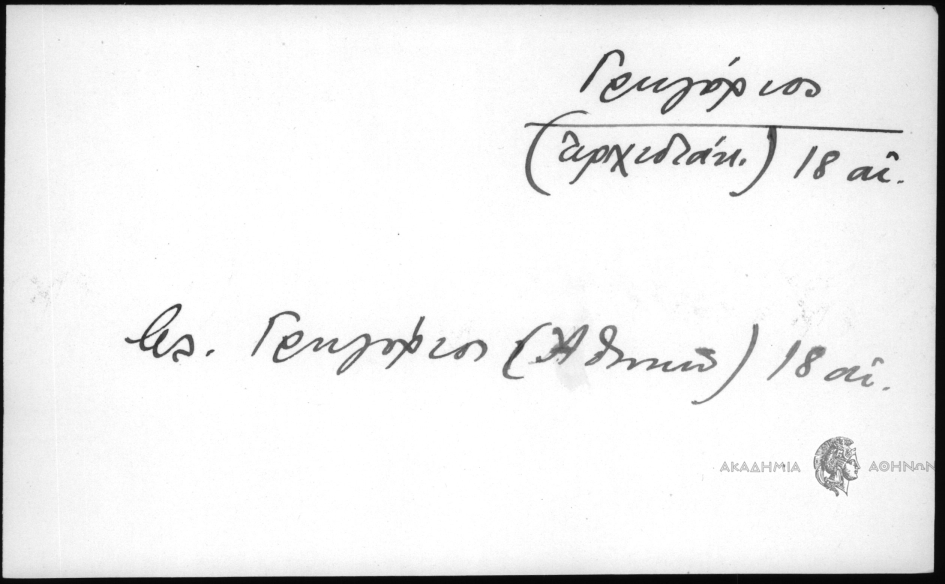 Γρηγόριος
(ἀρχιδιάκ.) 18 αἰ.
βλ. Γρηγόριος (Ἀθηνῶν) 18 αἰ.
ΑΚΑΔΗΜΙΑ ΑΘΗΝΩΝ